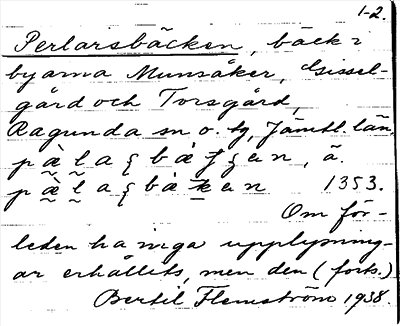 1-2.
Perlarsbäcken, bäck i
byarna Munsåker, Gissel-
gård och Torsgård,
Ragunda sn o. tg, Jämtl. län.
1353.
Om för-
leden ha inga upplysning-
ar erhållits, men den (forts.)
Bertil Flemström 1938.